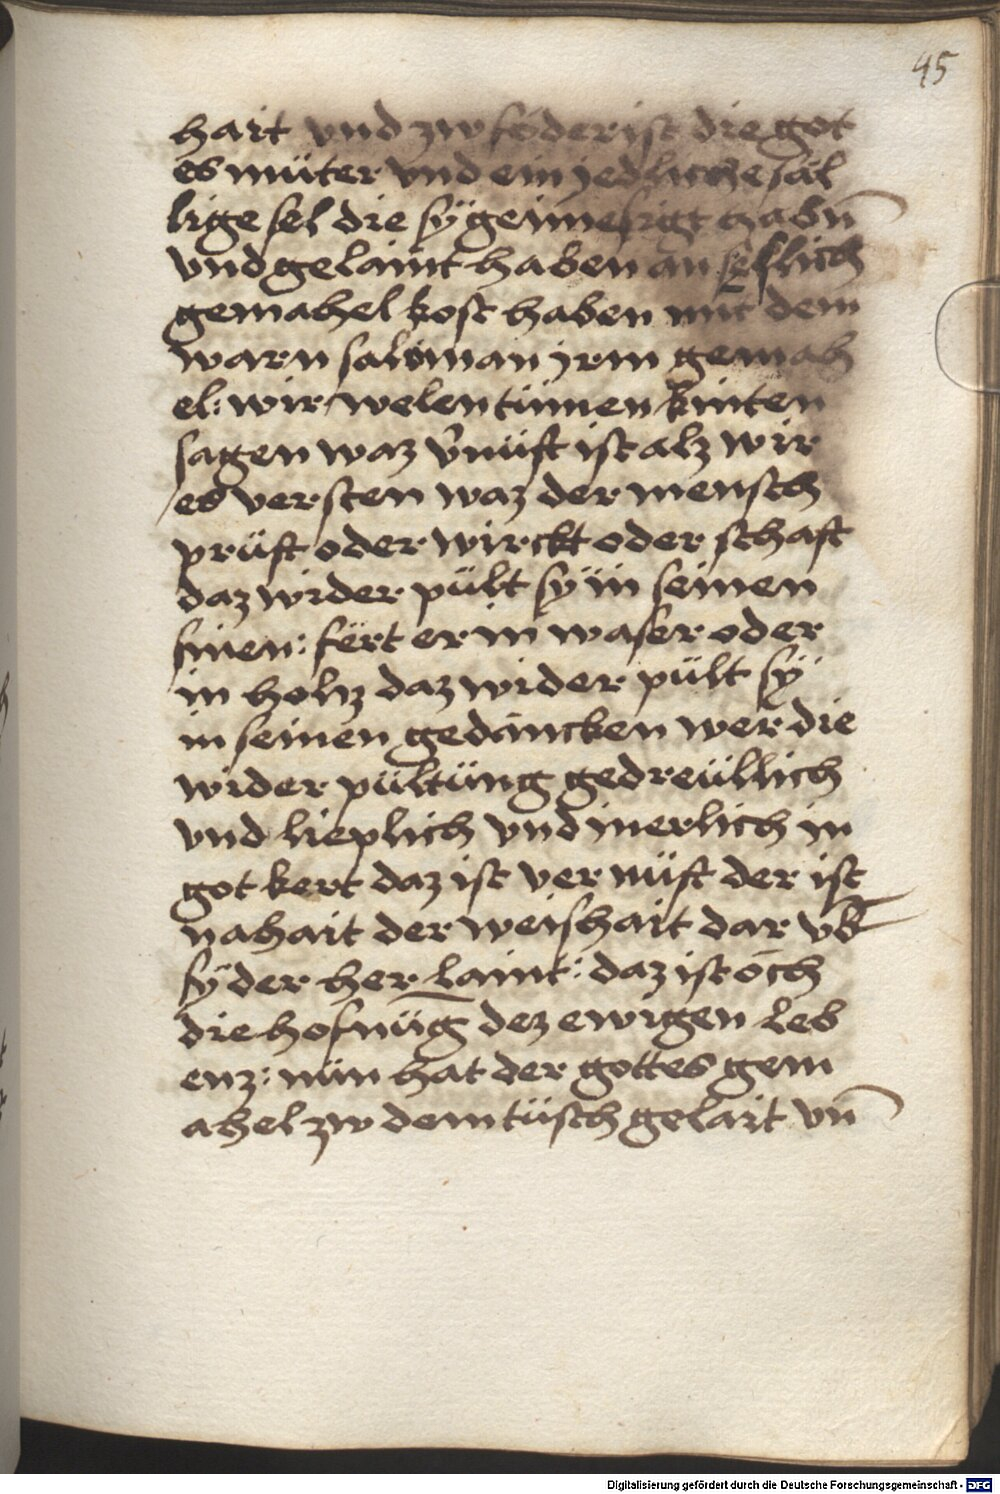 45
hait vnd zw foderist die got
es müter vnd ein jedliche säl
lige sel die sÿ geinnesigt habn̄
vnd gelaint haben an
gemahel kost haben mit dem
warn saloman jrm gemah
el: wir welen tümen kinten
sagen waz v̉nüft ist alz wir
es versten waz der mensch
prüft oder wirckt oder schaft
daz wider pült sÿ in seinen
sinen: fërt er in waser oder
in holtz daz wider pült sÿ
in seinen gedäncken wer die
wider pültüng gedreüllich
vnd lieplich vnd inerlich in
got kert daz ist vernüft der ist
nahait der weishait dar vb̄
sÿ der her laint: daz ist och
die hofnüg dez ewigen leb
enz: nün hat der gottes gem
ahel zw dem tüsch gelait vn̄
Digitalisierung gefördert durch die Deutsche Forschungsgemeinschaft - DFG